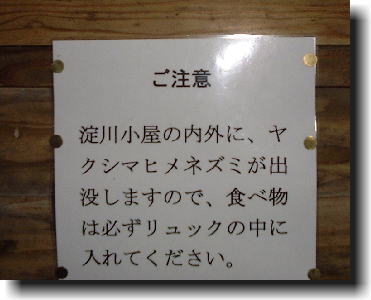 ご注意
淀川小屋の内外に、ヤ
クシマヒメネズミが出
没しますので、食べ物
は必ずリュックの中に
入れてください。